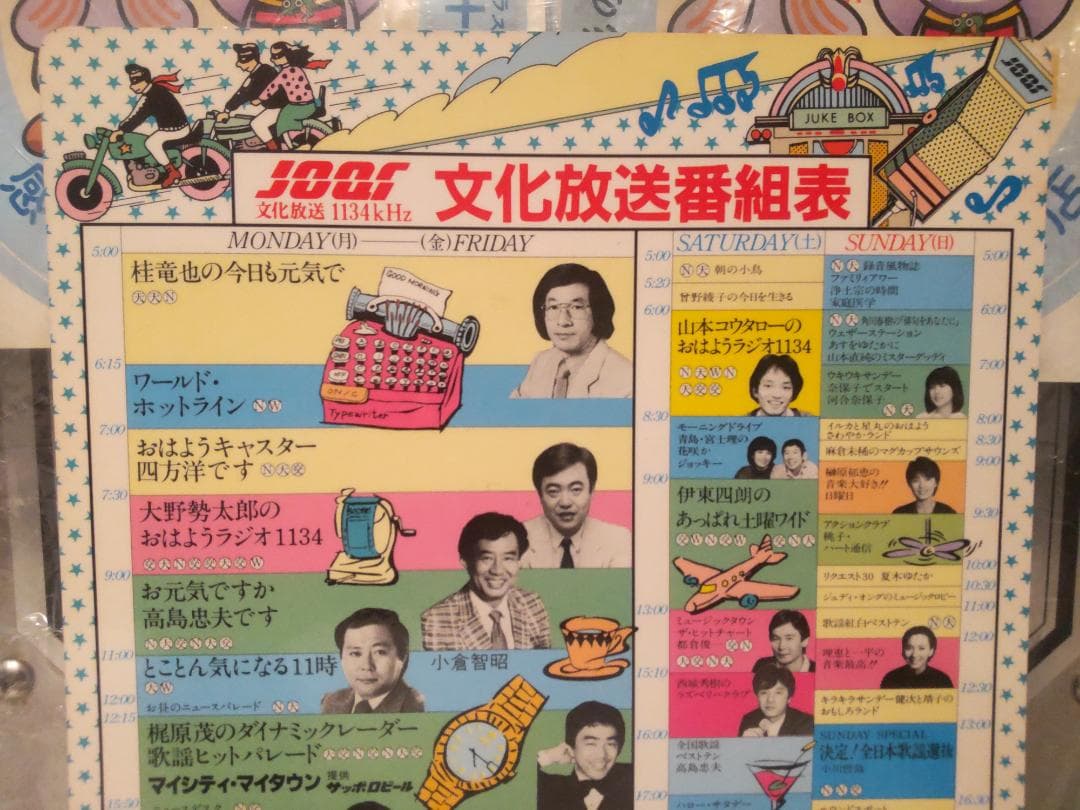 JUKE BOX
JOQR
JOQR 文化放送番組表
文化放送 1134kHz
MONDAY(月)——(金)FRIDAY
5:00
桂竜也の今日も元気で
天天N
GOOD MORNING
Typewriter
6:15
ワールド・
ホットライン NW
7:00
おはようキャスター
四方洋です N天交
7:30
大野勢太郎の
おはようラジオ1134
交天N交交天交W
9:00
お元気ですか
高島忠夫です
N天交N天交
11:00
とことん気になる11時
天W
小倉智昭
12:00
お昼のニュースパレード N天
12:15
梶原茂のダイナミックレーダー
歌謡ヒットパレード
マイシティ・マイタウン 提供 サッポロビール
15:50
SATURDAY(土)
5:00
N天 朝の小鳥
5:20
曽野綾子の今日を生きる
6:00
山本コウタローの
おはようラジオ1134
N天WN
天交交
8:30
モーニングドライブ
青島・宮士理の
花咲か
ジョッキー
9:00
伊東四朗の
あっぱれ土曜ワイド
交WN交W 交N天
13:00
ミュージックタウン
ザ・ヒットチャート
都倉俊一 交N
天交N天
15:10
西城秀樹の
ラズベリークラブ
16:00
全国歌謡
ベストテン
高島忠夫
17:00
ハロー・サタデー
SUNDAY(日)
5:00
N天 録音風物誌
ファミリィアワー
浄土宗の時間
家庭医学
6:00
N天 角川春樹の「俳句をあなたに」
ウェザーステーション
あすをゆたかに
山本直純のミスターダッディ
7:00
ウキウキサンデー
奈保子でスタート
河合奈保子 N天
8:00
イルカと星丸のおはよう
さわやかランド
8:30
麻倉未稀のマグカップサウンズ
9:00
榊原郁恵の
音楽大好き!!
日曜日
9:30
アクションクラブ
桃子・
ハート通信
10:00
リクエスト30 夏木ゆたか
10:30
ジュディ・オングのミュージックロビー
11:00
歌謡組子+ベストテン N天
12:00
理恵と一平の
音楽最高!!
12:30
キラキラサンデー健次と靖子の
おもしろランド
13:00
SUNDAY SPECIAL
決定!全日本歌謡選抜
小川哲哉
NNN
16:30